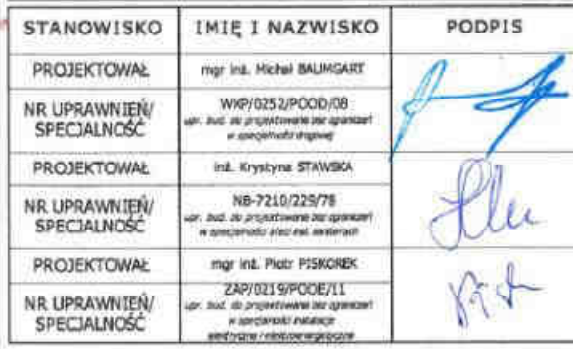 STANOWISKO IMIĘ I NAZWISKO PODPIS
PROJEKTOWAŁ mgr inż. Michał BAUMGART
NR UPRAWNIEŃ/
SPECJALNOŚĆ
WKP/0252/POOD/08
upr. bud. do projektowania bez ograniczeń
w specjalności drogowej
PROJEKTOWAŁ inż. Krystyna STAWSKA
NR UPRAWNIEŃ/
SPECJALNOŚĆ
NB-7210/229/78
upr. bud. do projektowania bez ograniczeń
w specjalności sieci
PROJEKTOWAŁ mgr inż. Piotr PISKOREK
NR UPRAWNIEŃ/
SPECJALNOŚĆ
ZAP/0219/POOE/11
upr. bud. do projektowania bez ograniczeń
w specjalności instalacje
elektryczne i elektroenergetyczne